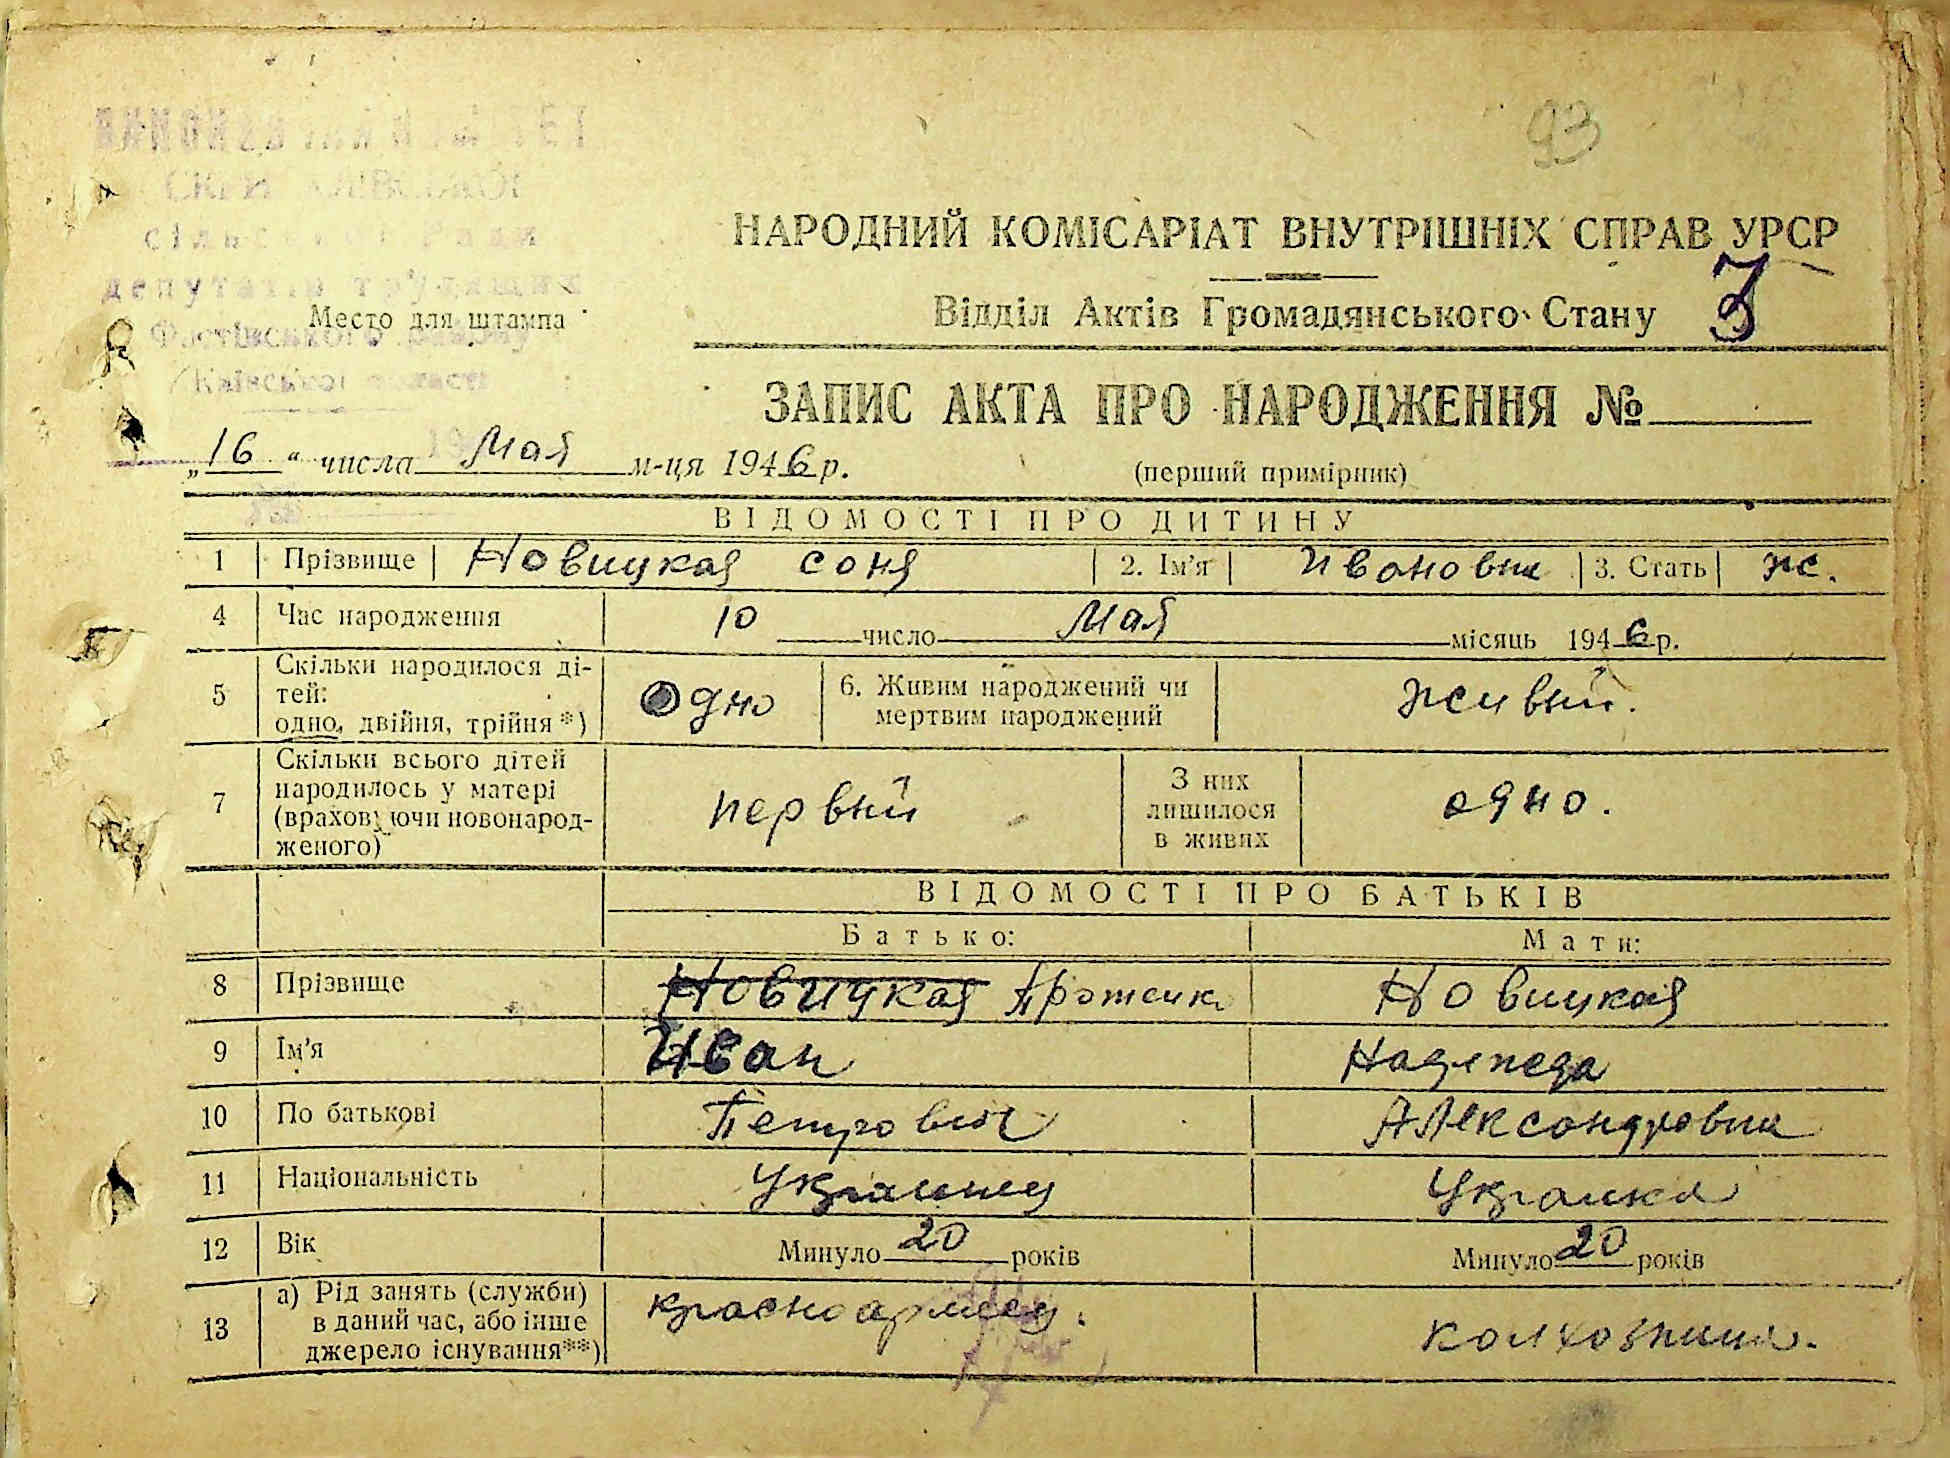 93
сільської Ради
депутатів трудящих
Фастівського району
Київської області
Место для штампа
НАРОДНИЙ КОМІСАРІАТ ВНУТРІШНІХ СПРАВ УРСР
Відділ Актів Громадянського Стану 3
ЗАПИС АКТА ПРО НАРОДЖЕННЯ №
„16“ числа Мая м-ця 1946 р.
(перший примірник)
ВІДОМОСТІ ПРО ДИТИНУ
1 Прізвище Новицкая соня 2. Ім'я Ивановна 3. Стать ж.
4 Час народження 10 число Мая місяць 1946 р.
5 Скільки народилося ді-
тей:
одно, двійня, трійня *) одно 6. Живим народжений чи
мертвим народжений живый.
7 Скільки всього дітей
народилось у матері
(враховуючи новонарод-
женого) первый З них
лишилося
в живих одно.
ВІДОМОСТІ ПРО БАТЬКІВ
Батько: Мати:
8 Прізвище Новицкая Новицкая
9 Ім'я Иван Надежда
10 По батькові Петрович Александровна
11 Національність Украинец Украинка
12 Вік Минуло 20 років Минуло 20 років
13 а) Рід занять (служби)
в даний час, або інше
джерело існування**) красноармеец. колхозница.